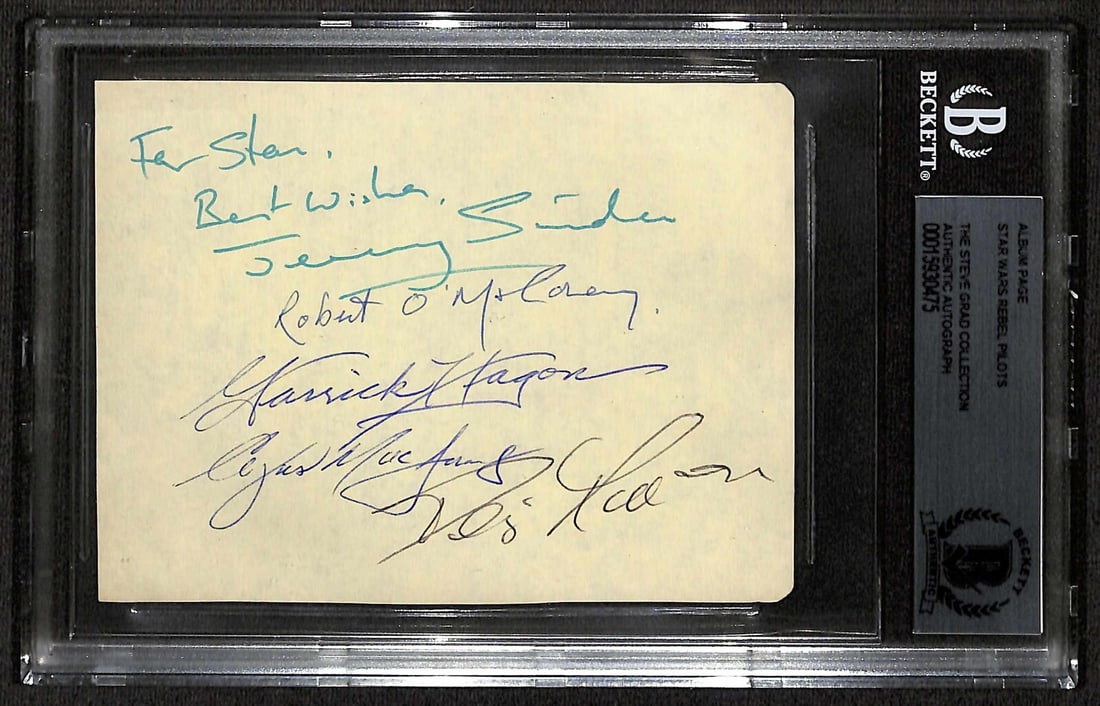 For Stan.
Best Wishes,
Jeremy Sinden
Robert O'Mahoney.
Garrick Hagon
Angus MacInnes
BECKETT®
B
ALBUM PAGE
STAR WARS REBEL PILOTS
THE STEVE GRAD COLLECTION
AUTHENTIC AUTOGRAPH
00015930475
BECKETT
B
AUTHENTIC